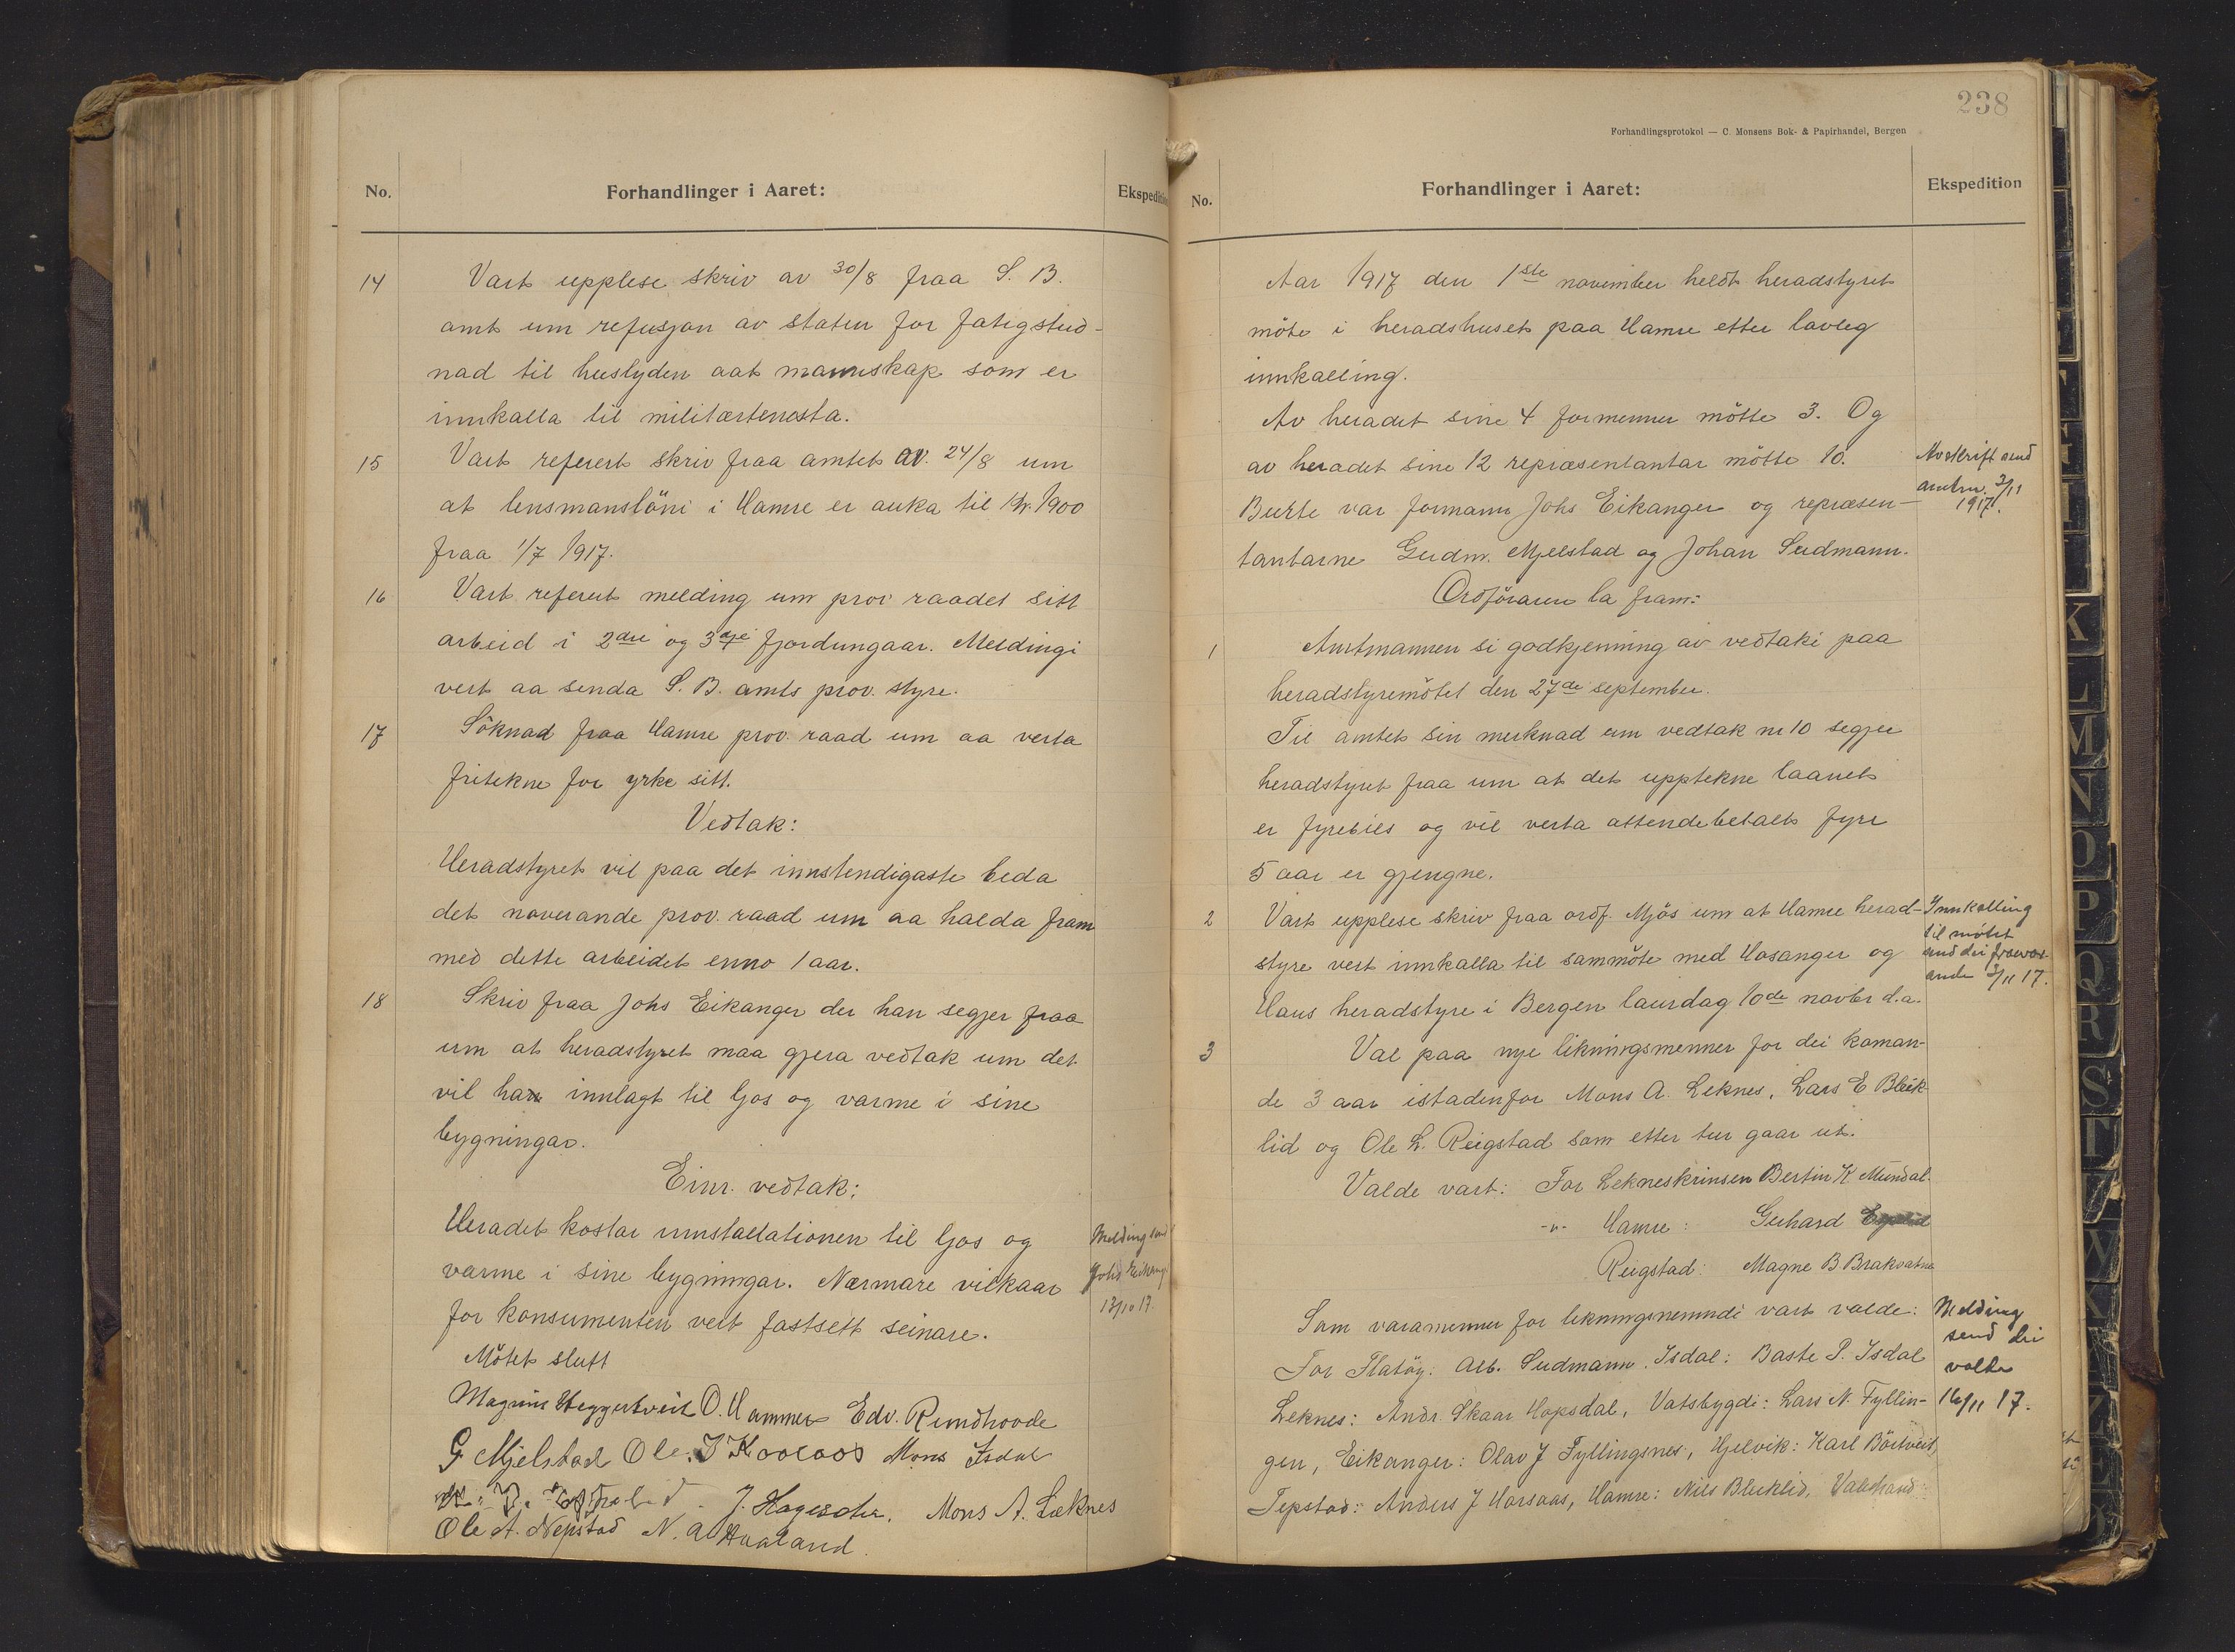 No.
Forhandlinger i Aaret:
Ekspedition
14
Vart upplese skriv av 30/8 fraa S. B.
amt um refusjon av staten for fatigstud-
nad til huslyden aat mannskap som er
innkalla til militærtenesta.
15
Vart referert skriv fraa amtet av 24/8 um
at lensmanslöni i Hamre er auka til Kr. 1900
fraa 1/7 1917.
16
Vart referert melding um prov raadet sitt
arbeid i 2dre og 3dje fjordungaar. Meldingi
vert aa senda S. B. amts prov. styre.
17
Söknad fraa Hamre prov. raad um aa verta
fritekne for yrke sitt.
Vedtak:
Heradstyret vil paa det innstendigaste beda
det noverande prov. raad um aa halda fram
med dette arbeidet enno 1 aar.
18
Skriv fraa Johs Eikanger der han segjer fraa
um at heradstyret maa gjera vedtak um det
vil ha innlagt til ljos og varme i sine
bygningar.
Einr. vedtak:
Heradet kostar innstallationen til ljos og
varme i sine bygningar. Nærmare vilkaar
for konsumenten vert fastsett seinare.
Melding send
Johs Eikanger
13/10 17.
Mötet slutt
Magnus Heggertveit O. Hammer Edv. Rundhovde
G Mjelstad Ole. J Mons Isdal
J. Mons A. Leknes
Ole A. Nepstad N. A Hualand
238
Forhandlingsprotokol — C. Monsens Bok- & Papirhandel, Bergen
No.
Forhandlinger i Aaret:
Ekspedition
Aar 1917 den 1ste november heldt heradstyret
möte i heradshuset paa Hamre etter lovleg
innkalling.
Av heradet sine 4 formenner mötte 3. Og
av heradet sine 12 repræsentantar mötte 10.
Burte var formann Johs Eikanger og repræsen-
tantarne Gudm. Mjelstad og Johan Sudmann.
Avskrift send
amtm. 3/11
1917.
Ordföraren la fram:
1
Amtmannen si godkjenning av vedtaki paa
heradstyremötet den 27de september.
Til amtet sin merknad um vedtak nr 10 segjer
heradstyret fraa um at det upptekne laanet
er fyrebils og vil verta attendebetalt fyre
5 aar er gjengne.
2
Vart upplese skriv fraa ordf. Mjös um at Hamre herad-
styre vert innkalla til sammöte med Hosanger og
Haus heradstyre i Bergen laurdag 10de novbr d.a.
Innkalling
til mötet
send dei fraver-
ande 3/11 17.
3
Val paa nye likningsmenner for dei koman-
de 3 aar istadenfor Mons A. Leknes, Lars E Bleik-
lid og Ole L. Reigstad som etter tur gaar ut.
Valde vart: For Lekneskrinsen Bertin K Mundal.
-"- Hamre: Gerhard
Reigstad: Magne B Brakvatne
Som varamenner for likningsnemndi vart valde:
For Flatöy: Alb. Sudmann. Isdal: Baste P. Isdal
Leknes: Andr. Skaar Hopsdal, Vatsbygdi: Lars N. Fyllin-
gen, Eikanger: Olav J Fyllingsnes, Hjelvik: Karl Börtveit
Tepstad: Anders J Horsaas, Hamre: Nils Bleiklid, Valestrand:
Melding
send dei
valde
16/11 17.